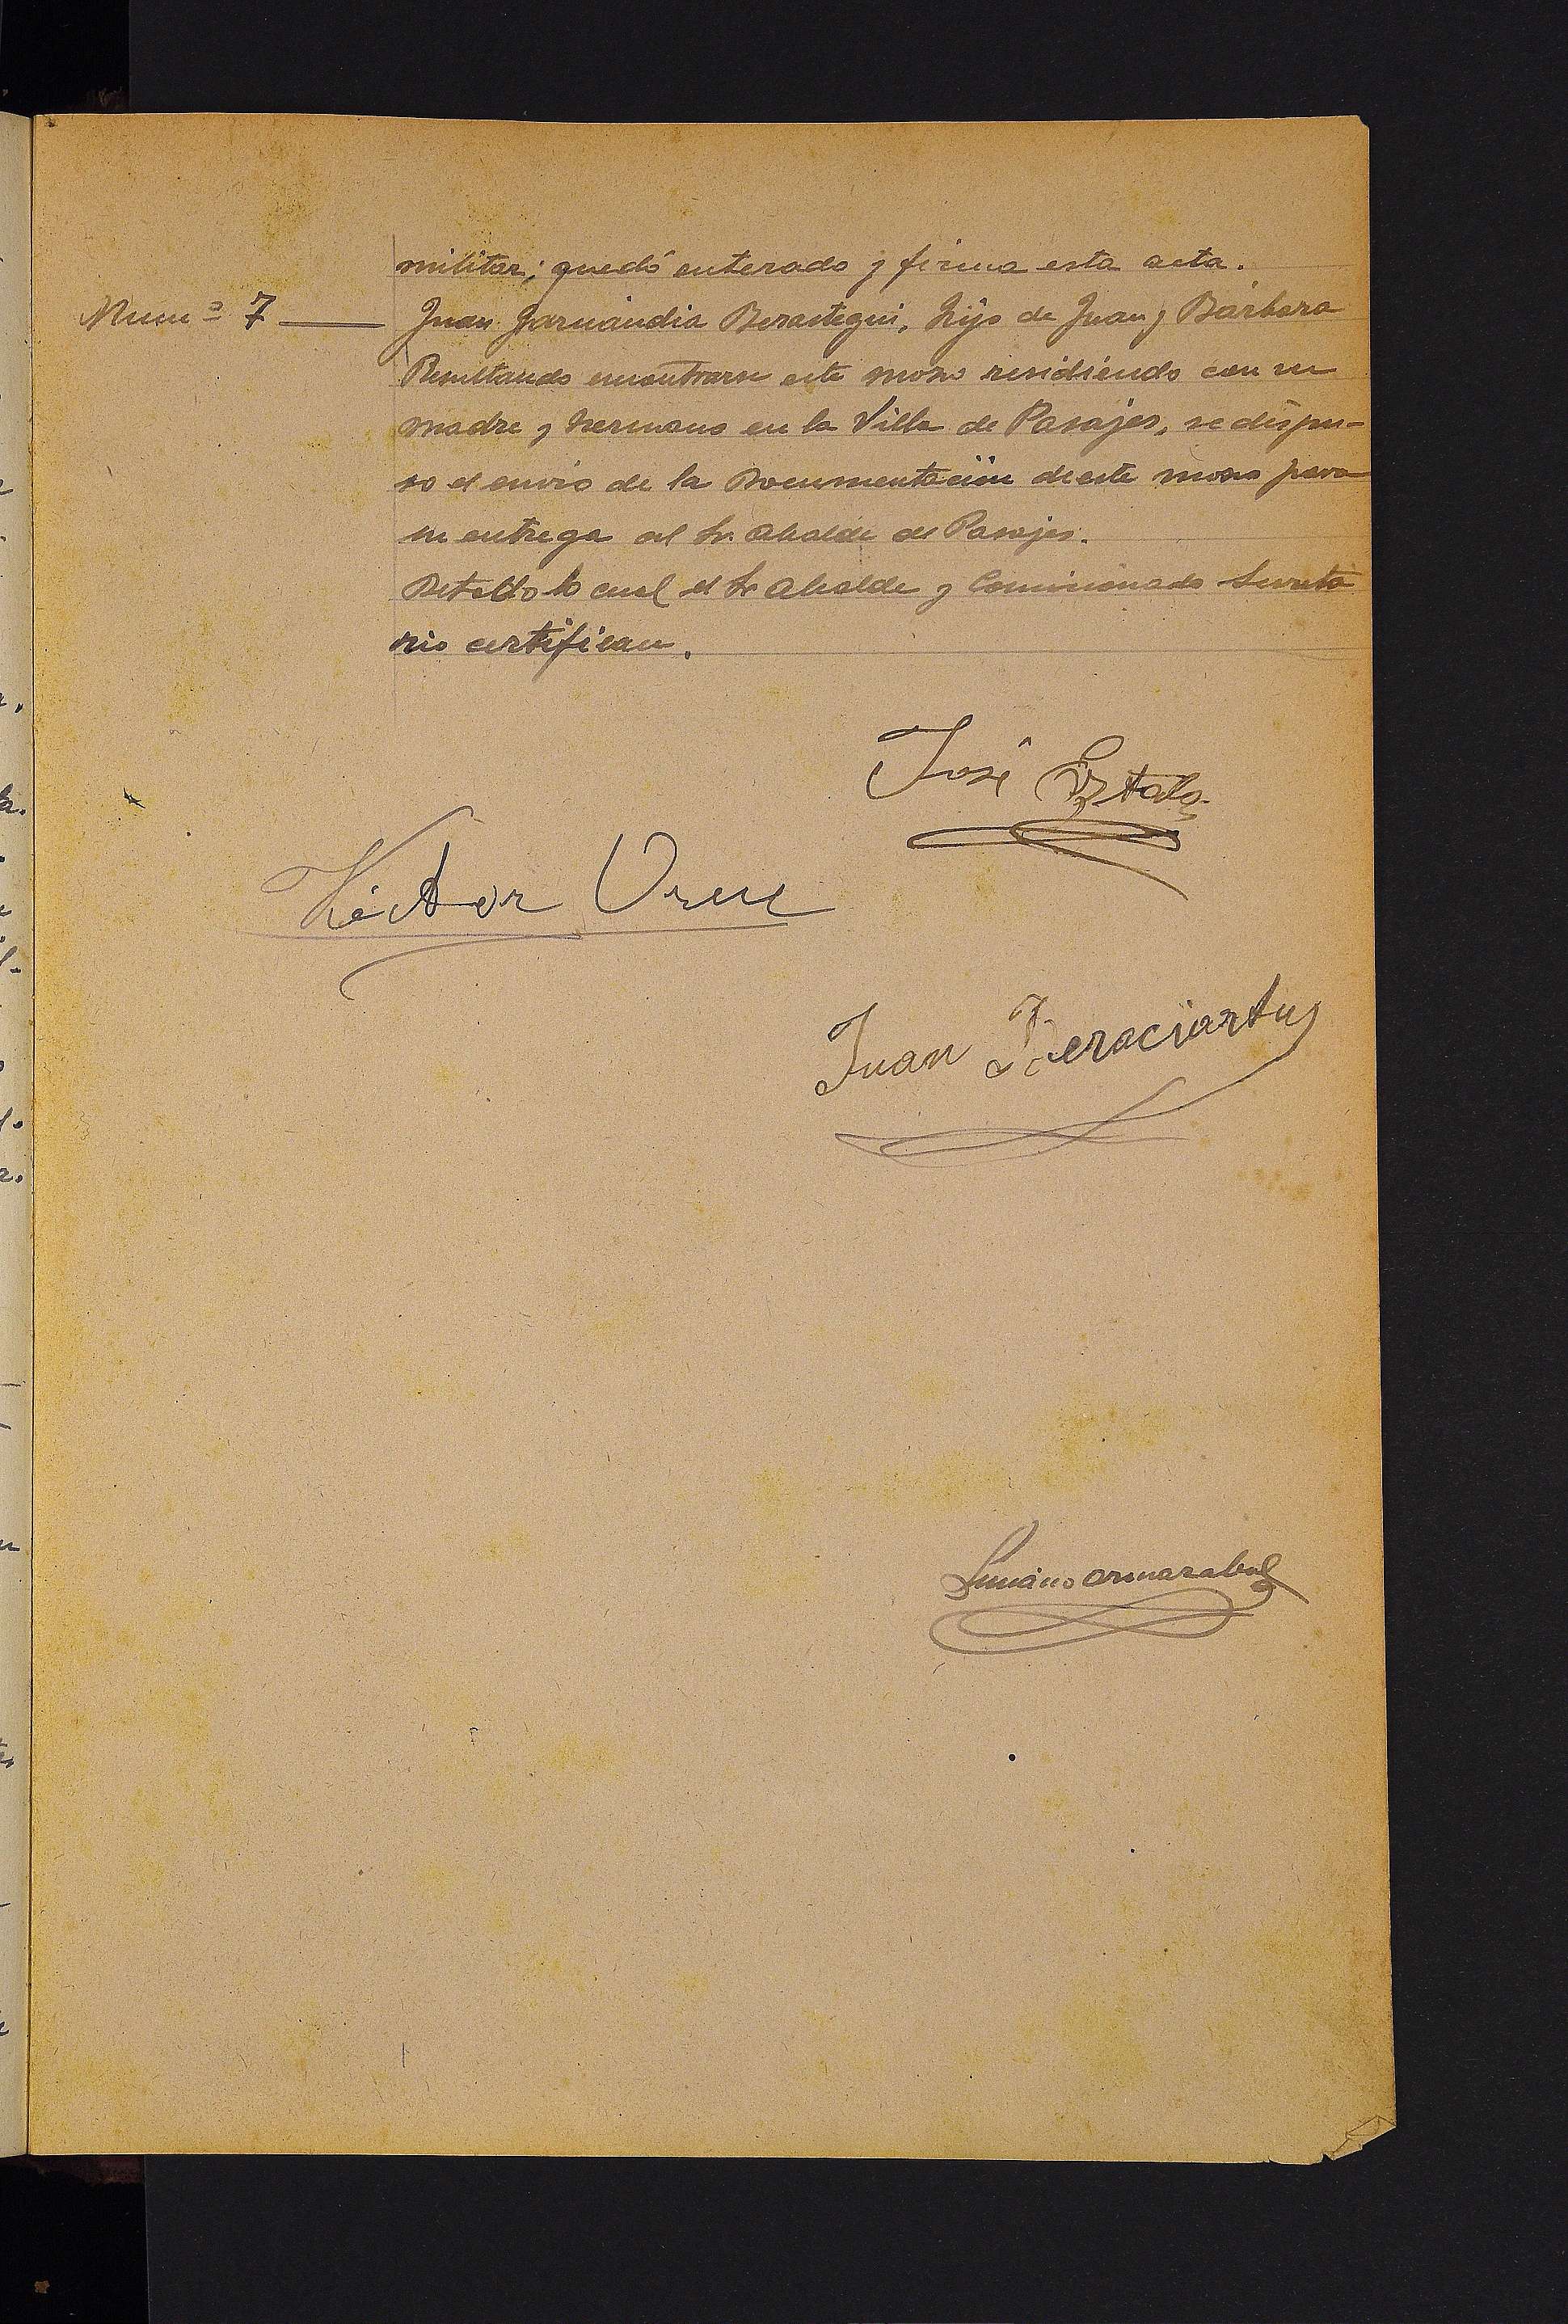 militar; quedó enterado y firma esta acta.
Num.º 7 — Juan Garmandia Berastegui, hijo de Juan y Bárbara
Resultando encontrarse este mozo residiendo con su
madre y hermano en la Villa de Pasajes, se dispu-
so el envio de la Documentación de este mozo para
su entrega al Sr. Alcalde de Pasajes.
De todo lo cual el Sr Alcalde y Comisionado Secreta
rio certifican.
José
Héctor
Juan Beraciartu